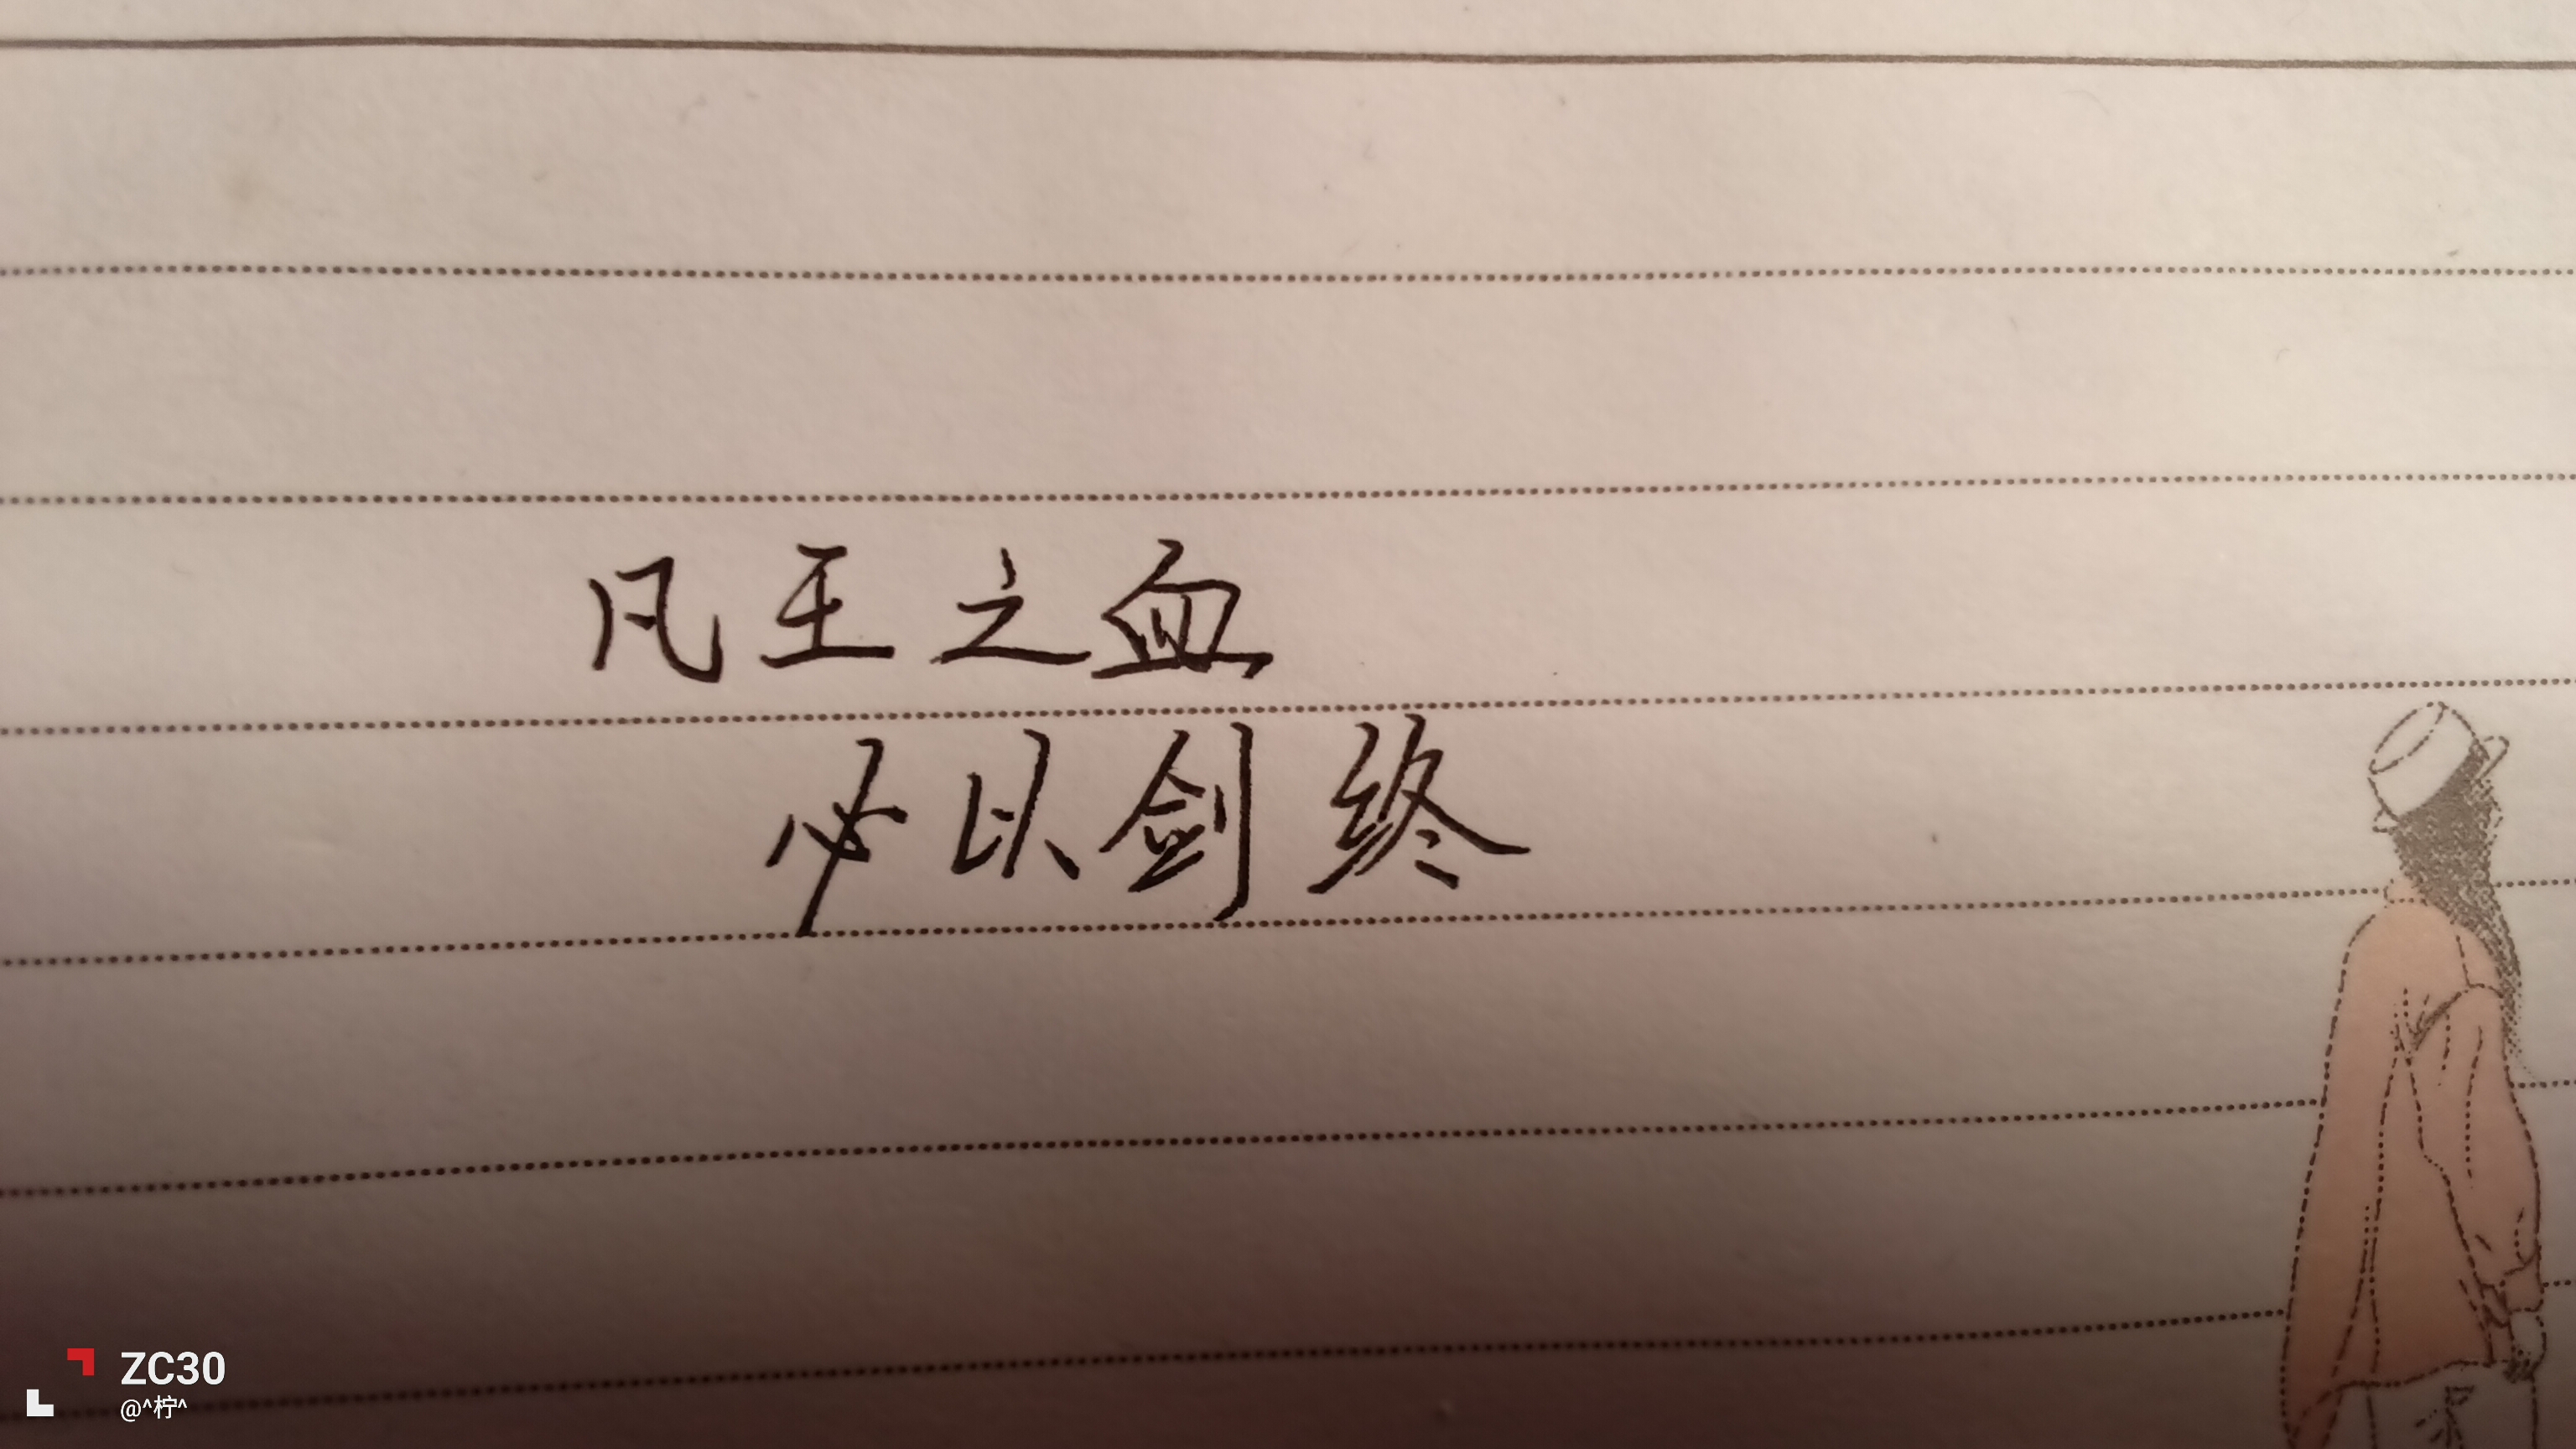 凡王之血
必以剑终
ZC30
@^柠^